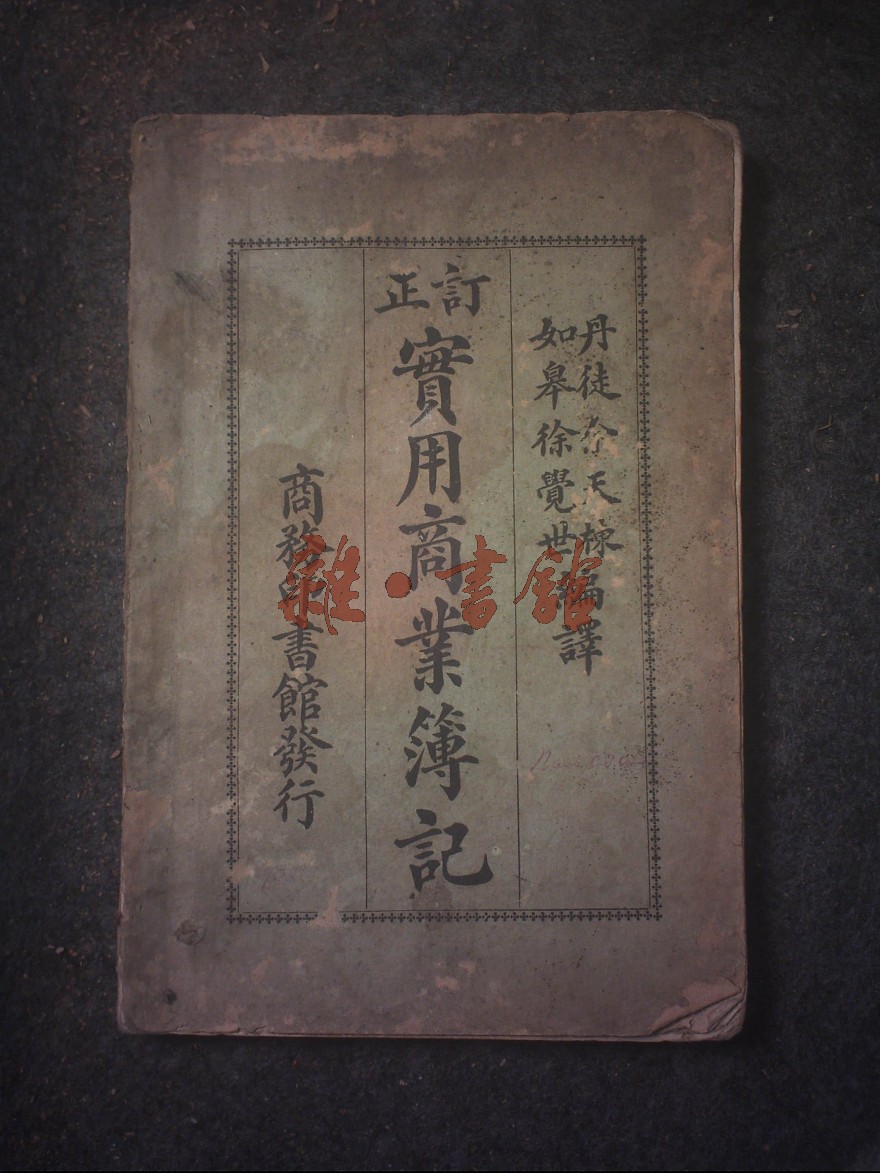 丹徒余天棟
如皋徐覺世
編譯
訂正
實用商業簿記
商務印書館發行
雜·書館